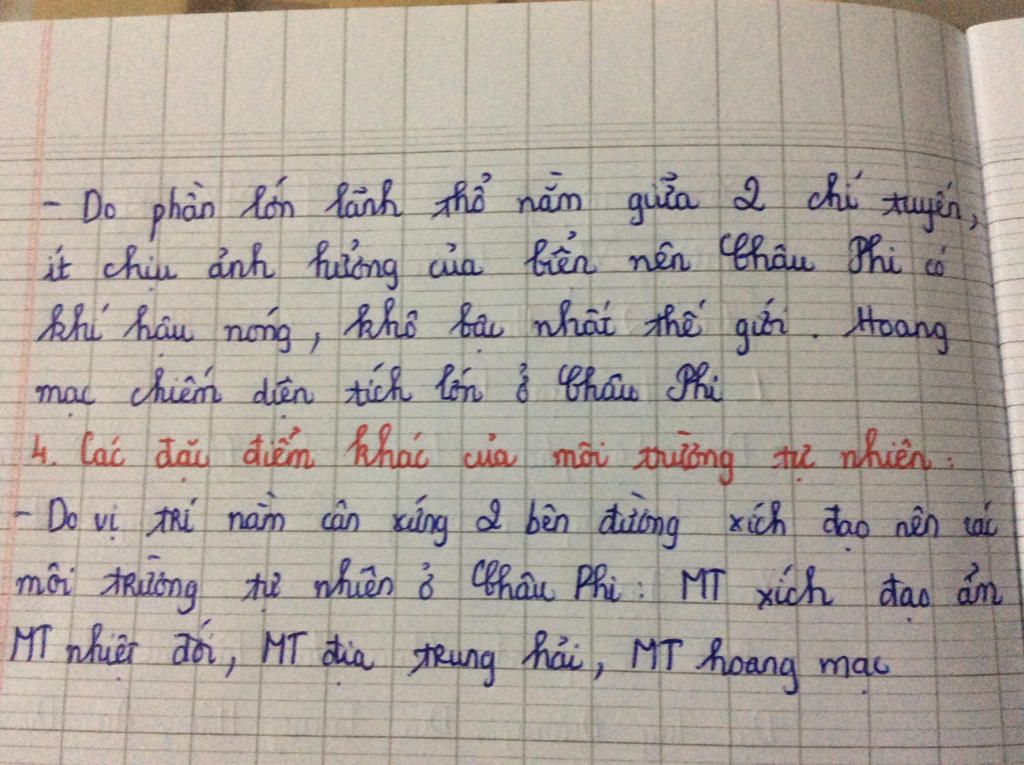 - Do phần lớn lãnh thổ nằm giữa 2 chí tuyến,
ít chịu ảnh hưởng của biển nên Châu Phi có
khí hậu nóng, khô bậc nhất thế giới. Hoang
mạc chiếm diện tích lớn ở Châu Phi
4. Các đặc điểm khác của môi trường tự nhiên:
- Do vị trí nằm cân xứng 2 bên đường xích đạo nên các
môi trường tự nhiên ở Châu Phi: MT xích đạo ẩm
MT nhiệt đới, MT địa trung hải, MT hoang mạc